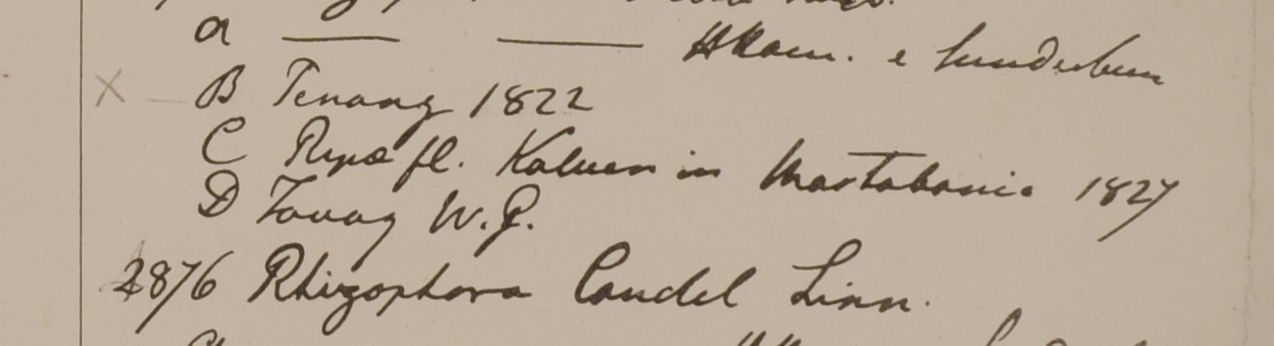 a —— —— HHam. e Sunderbun
B Penang 1822
C Ripæ fl. Kaluen in Martabania 1827
D Tavoy W.G.
2876 Rhizophora Candel Linn.